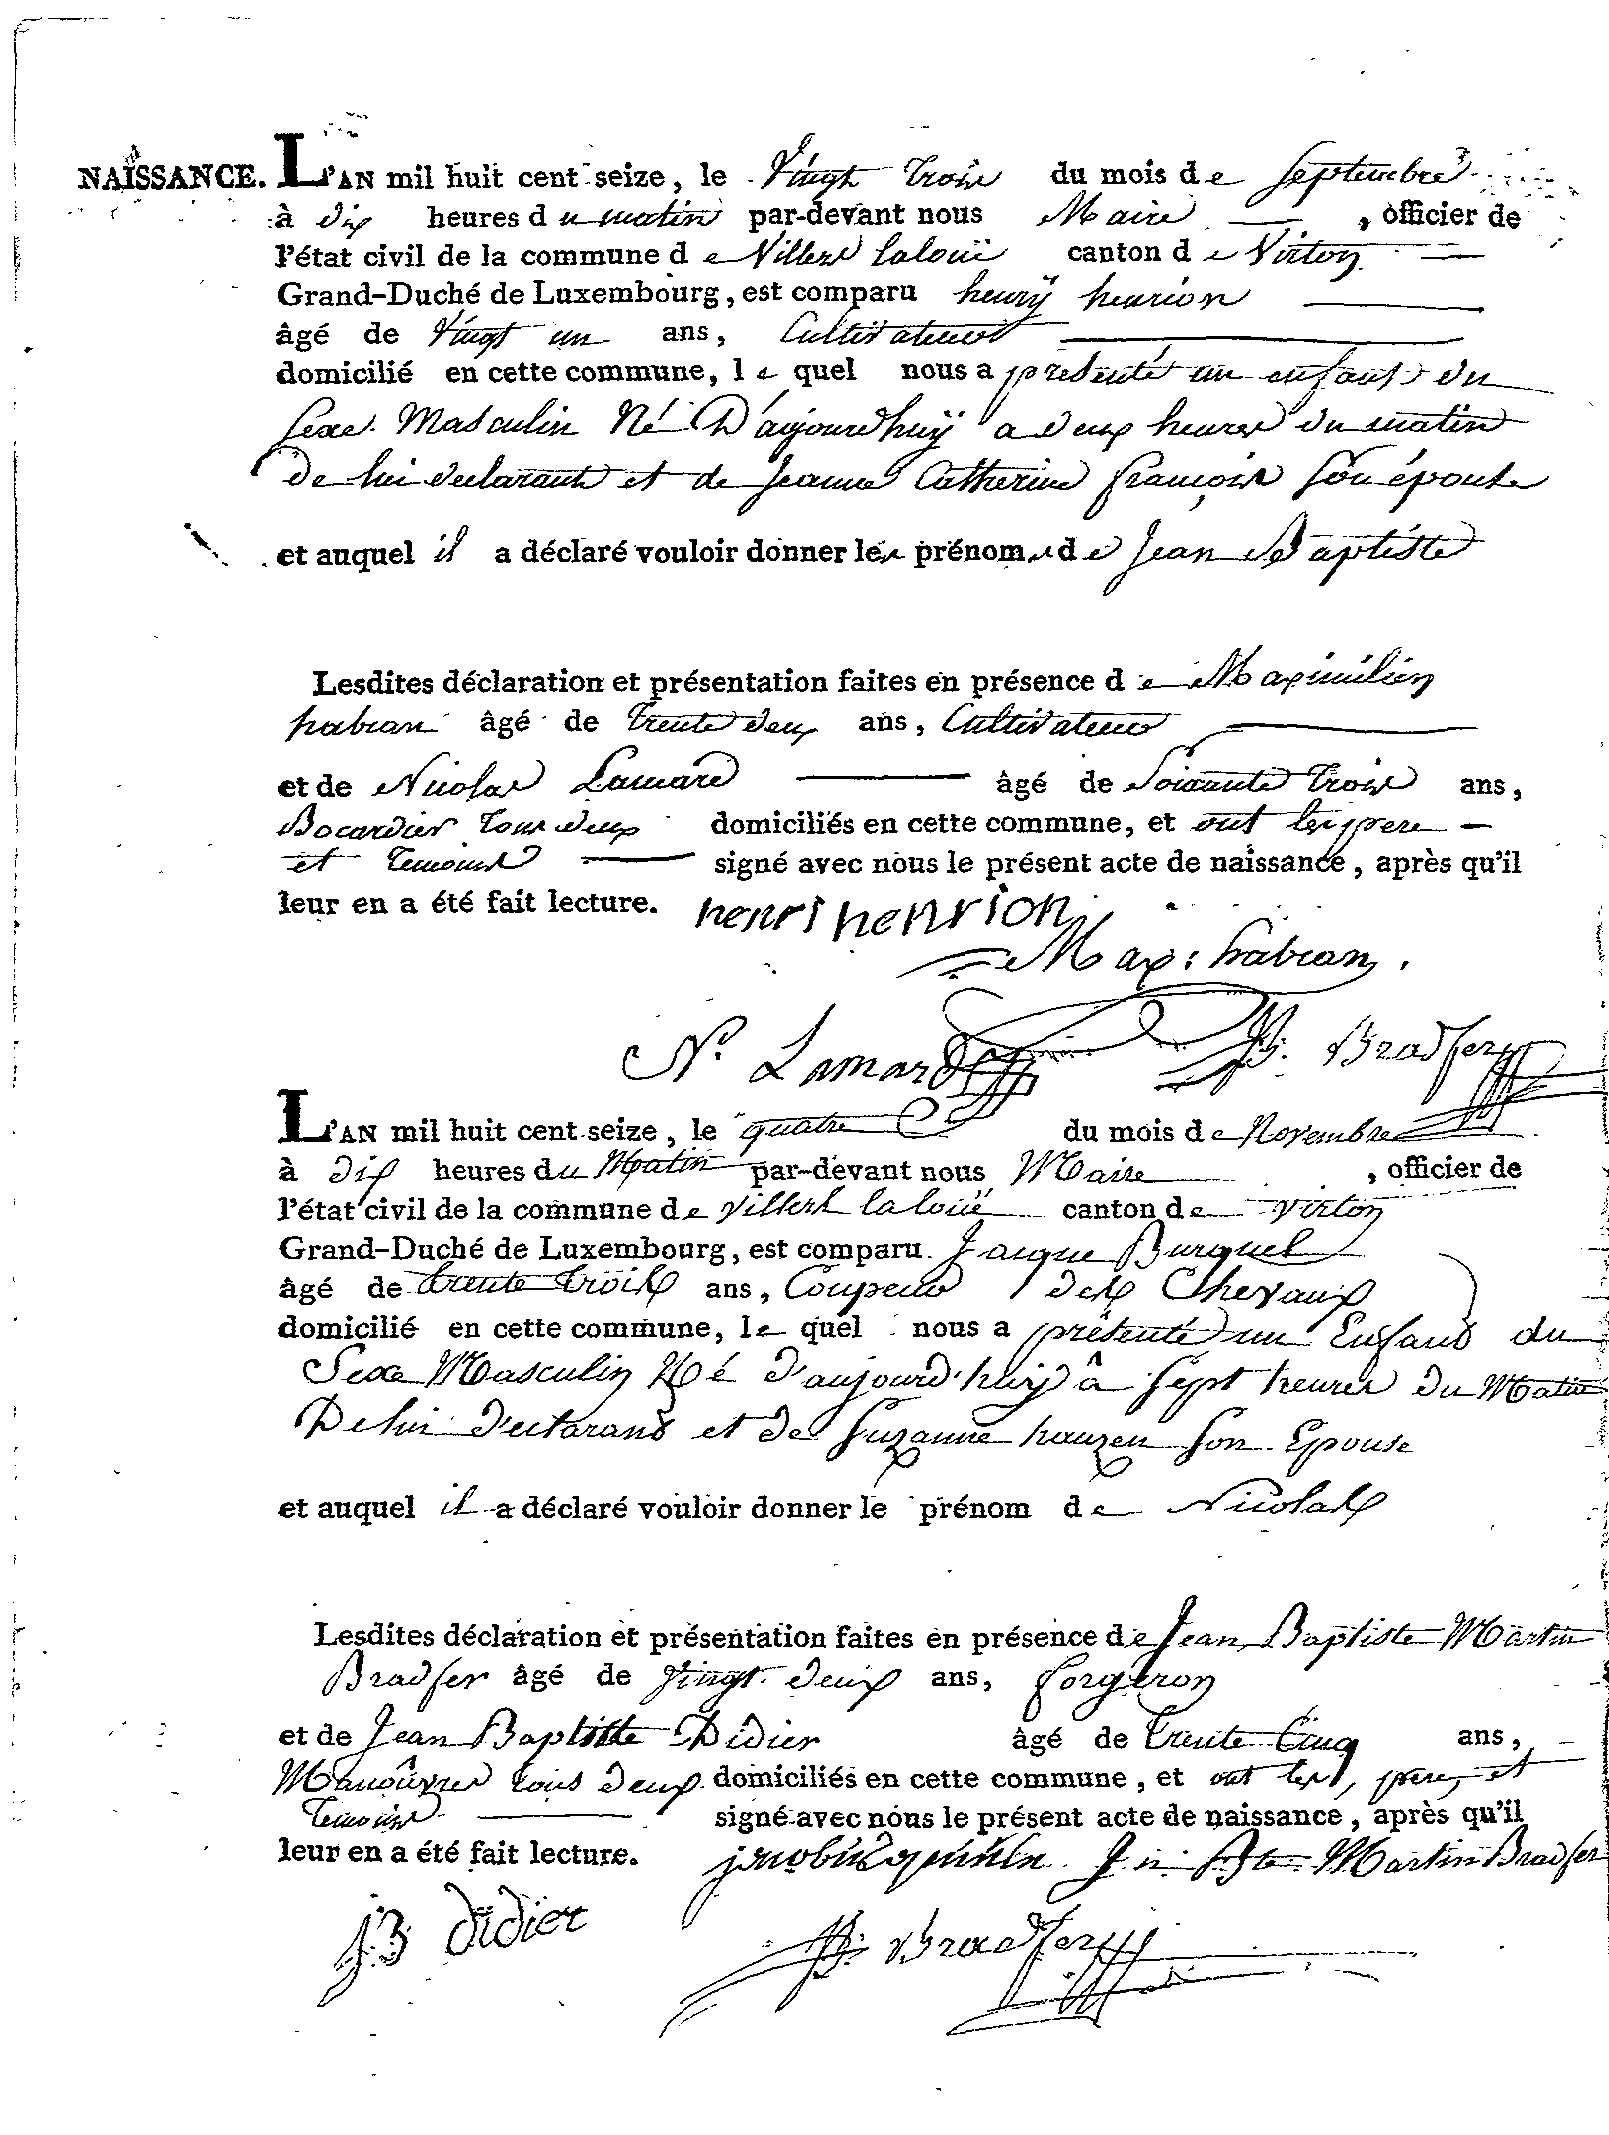 NAISSANCE. L'AN mil huit cent seize, le Vingt trois du mois de Septembre
à dix heures du matin par-devant nous Maire , officier de
l'état civil de la commune de Villers laloüe canton de Virton
Grand-Duché de Luxembourg, est comparu henrÿ henrion
âgé de Vingt un ans, Cultivateur
domicilié en cette commune, lequel nous a présenté un enfant du
sexe Masculin Né D'aujourdhuÿ a deux heures du matin
de lui declarant et de Jeanne Catherine françois son épouse
et auquel il a déclaré vouloir donner les prénoms de Jean Baptiste
Lesdites déclaration et présentation faites en présence de Maximilien
habran âgé de trente deux ans, Cultivateur
et de Nicolas Lamard âgé de Soixante trois ans,
Bocardier tous deux domiciliés en cette commune, et ont les pere
et temoins signé avec nous le présent acte de naissance, après qu'il
leur en a été fait lecture. henri henrion
Max: habran.
N. Lamard B. Bradfer
L'AN mil huit cent seize, le quatre du mois de Novembre
à dix heures du Matin par-devant nous Maire , officier de
l'état civil de la commune de villers laloüe canton de virton
Grand-Duché de Luxembourg, est comparu Jacque Burquel
âgé de trente trois ans, Coupeur des Chevaux
domicilié en cette commune, le quel nous a présenté un Enfant du
Sexe Masculin Né d'aujourd'huy â sept heures du Matin
De lui declarant et de Suzanne hauzen son Epouse
et auquel il a déclaré vouloir donner le prénom de Nicolas
Lesdites déclaration et présentation faites en présence de Jean Baptiste Martin
Bradfer âgé de vingt deux ans, forgeron
et de Jean Baptiste Didier âgé de trente Cinq ans,
Manoûvres tous deux domiciliés en cette commune, et ont les, pere, et
temoins signé avec nous le présent acte de naissance, après qu'il
leur en a été fait lecture. Jn Bte Martin Bradfer
J.B didier B. Bradfer